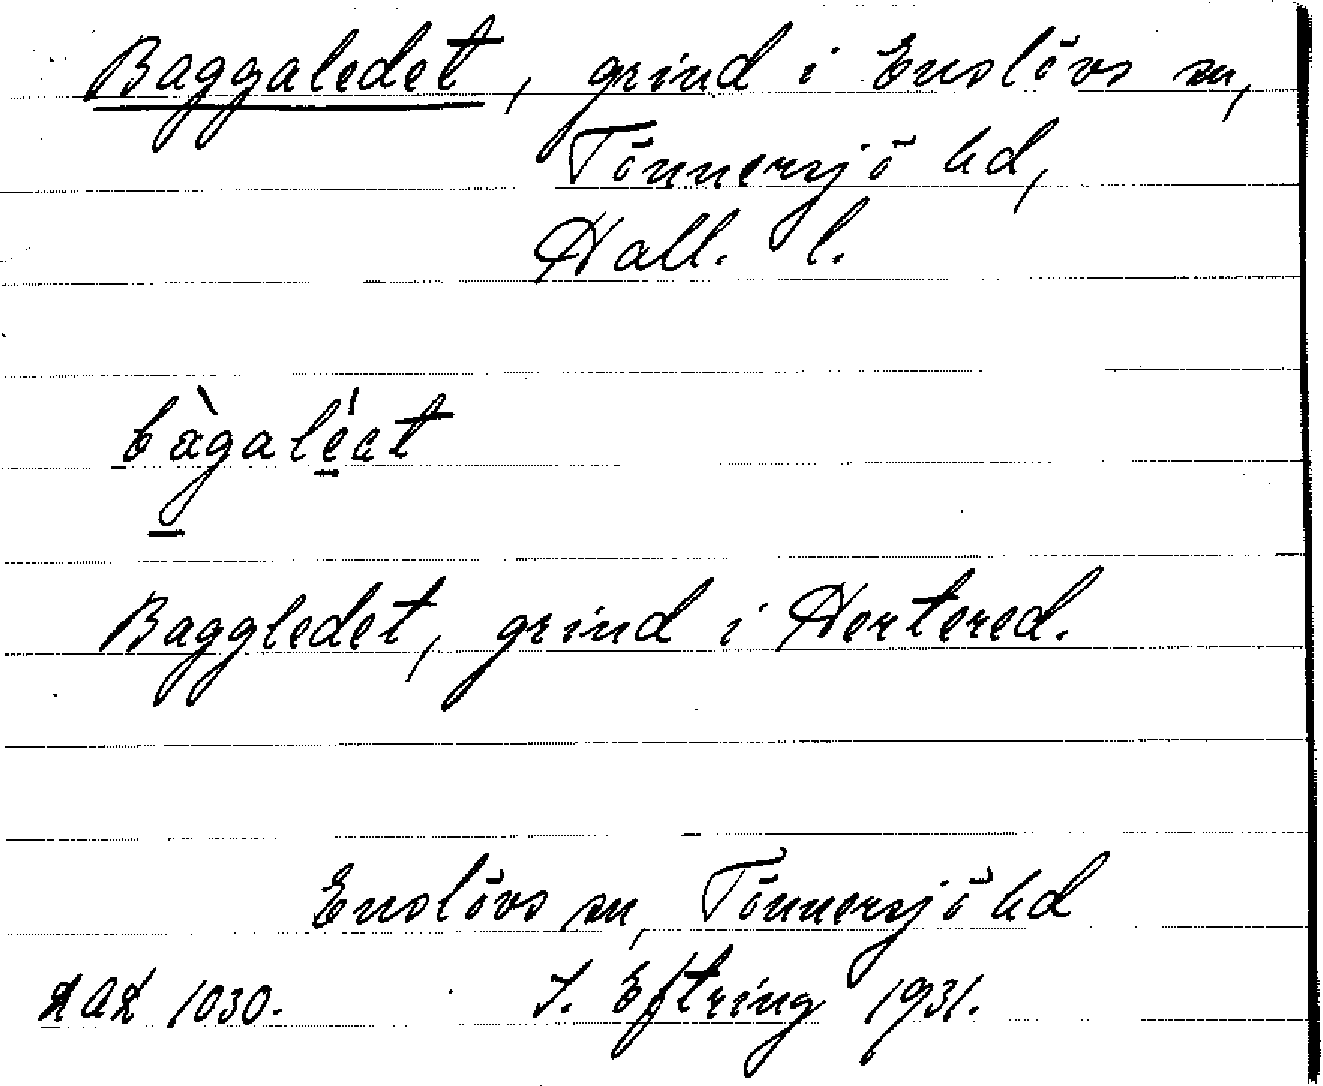 Baggaledet, grind i Enslövs sn,
Tönnersjö hd,
Hall. l.
bàgaléat
Baggledet, grind i Hertered.
Enslövs sn, Tönnersjö hd
LAL 1030. J. Eftring 1931.